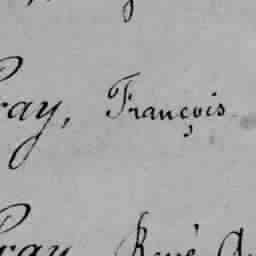 ray, François
ray, René